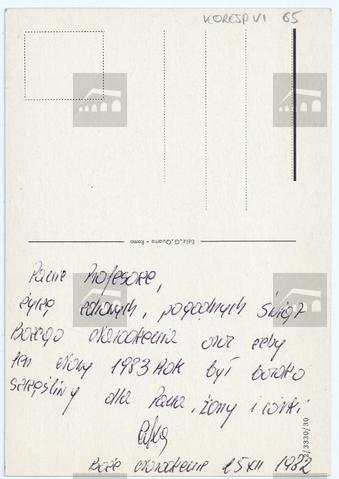 KORESP VI 65
Ediz. G. Quarta - Roma
Panie Profesorze,
życzę zdrowych, pogodnych Świąt
Bożego Narodzenia oraz żeby
ten Nowy 1983 Rok był bardzo
szczęśliwy dla Pana, żony i córki
Boże Narodzenie 25 XII 1982
3330/30